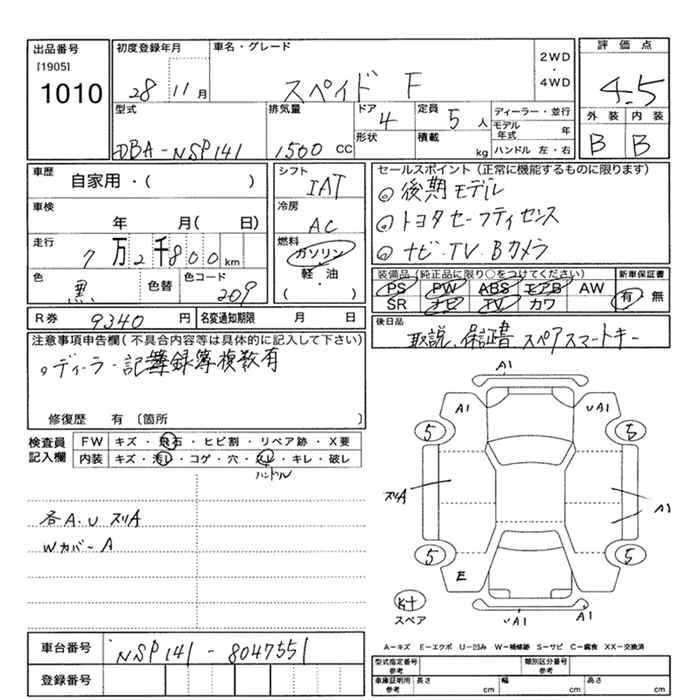 出品番号
[1905]
1010
初度登録年月
28 11 月
車名・グレード
スペイド F
2WD
・
4WD
評価点
4.5
外装 内装
B B
型式
DBA-NSP141
排気量
1500 CC
ドア
4
形状
定員
5 人
積載
kg
ディーラー・並行
モデル年式 年
ハンドル 左・右
車歴
自家用・( )
車検
年 月( 日)
走行
7万2千800km
色
黒
色替
色コード
209
シフト
IAT
冷房
AC
燃料
ガソリン
軽・油
( )
セールスポイント(正常に機能するものに限ります)
◎後期モデル
◎トヨタセーフティセンス
◎ナビ・TV・Bカメラ
装備品(純正品に限り○をつけてください)
PS PW ABS エアB AW
SR ナビ TV カワ
新車保証書
有・無
R券 9340 円
名変通知期限 月 日
後日品
取説、保証書 スペアスマートキー
注意事項申告欄(不具合内容等は具体的に記入して下さい)
。ディーラー記録簿複数有
修復歴 有 〔箇所 〕
検査員記入欄
FW キズ・飛石・ヒビ割・リペア跡・X要
内装 キズ・汚れ・コゲ・穴・スレ・キレ・破レ
ハンドル
各A.U スリA
Wカバー A
A1
A1
UA1
5
5
スリA
A1
5
5
E
スペア
UA1
A1
A-キズ E-エクボ U-凹み W-補修跡 S-サビ C-腐食 XX-交換済
車台番号
NSP141-8047551
登録番号
型式指定番号
参考
類別区分番号
参考
車庫証明用
参考
長さ cm
幅 cm
高さ cm